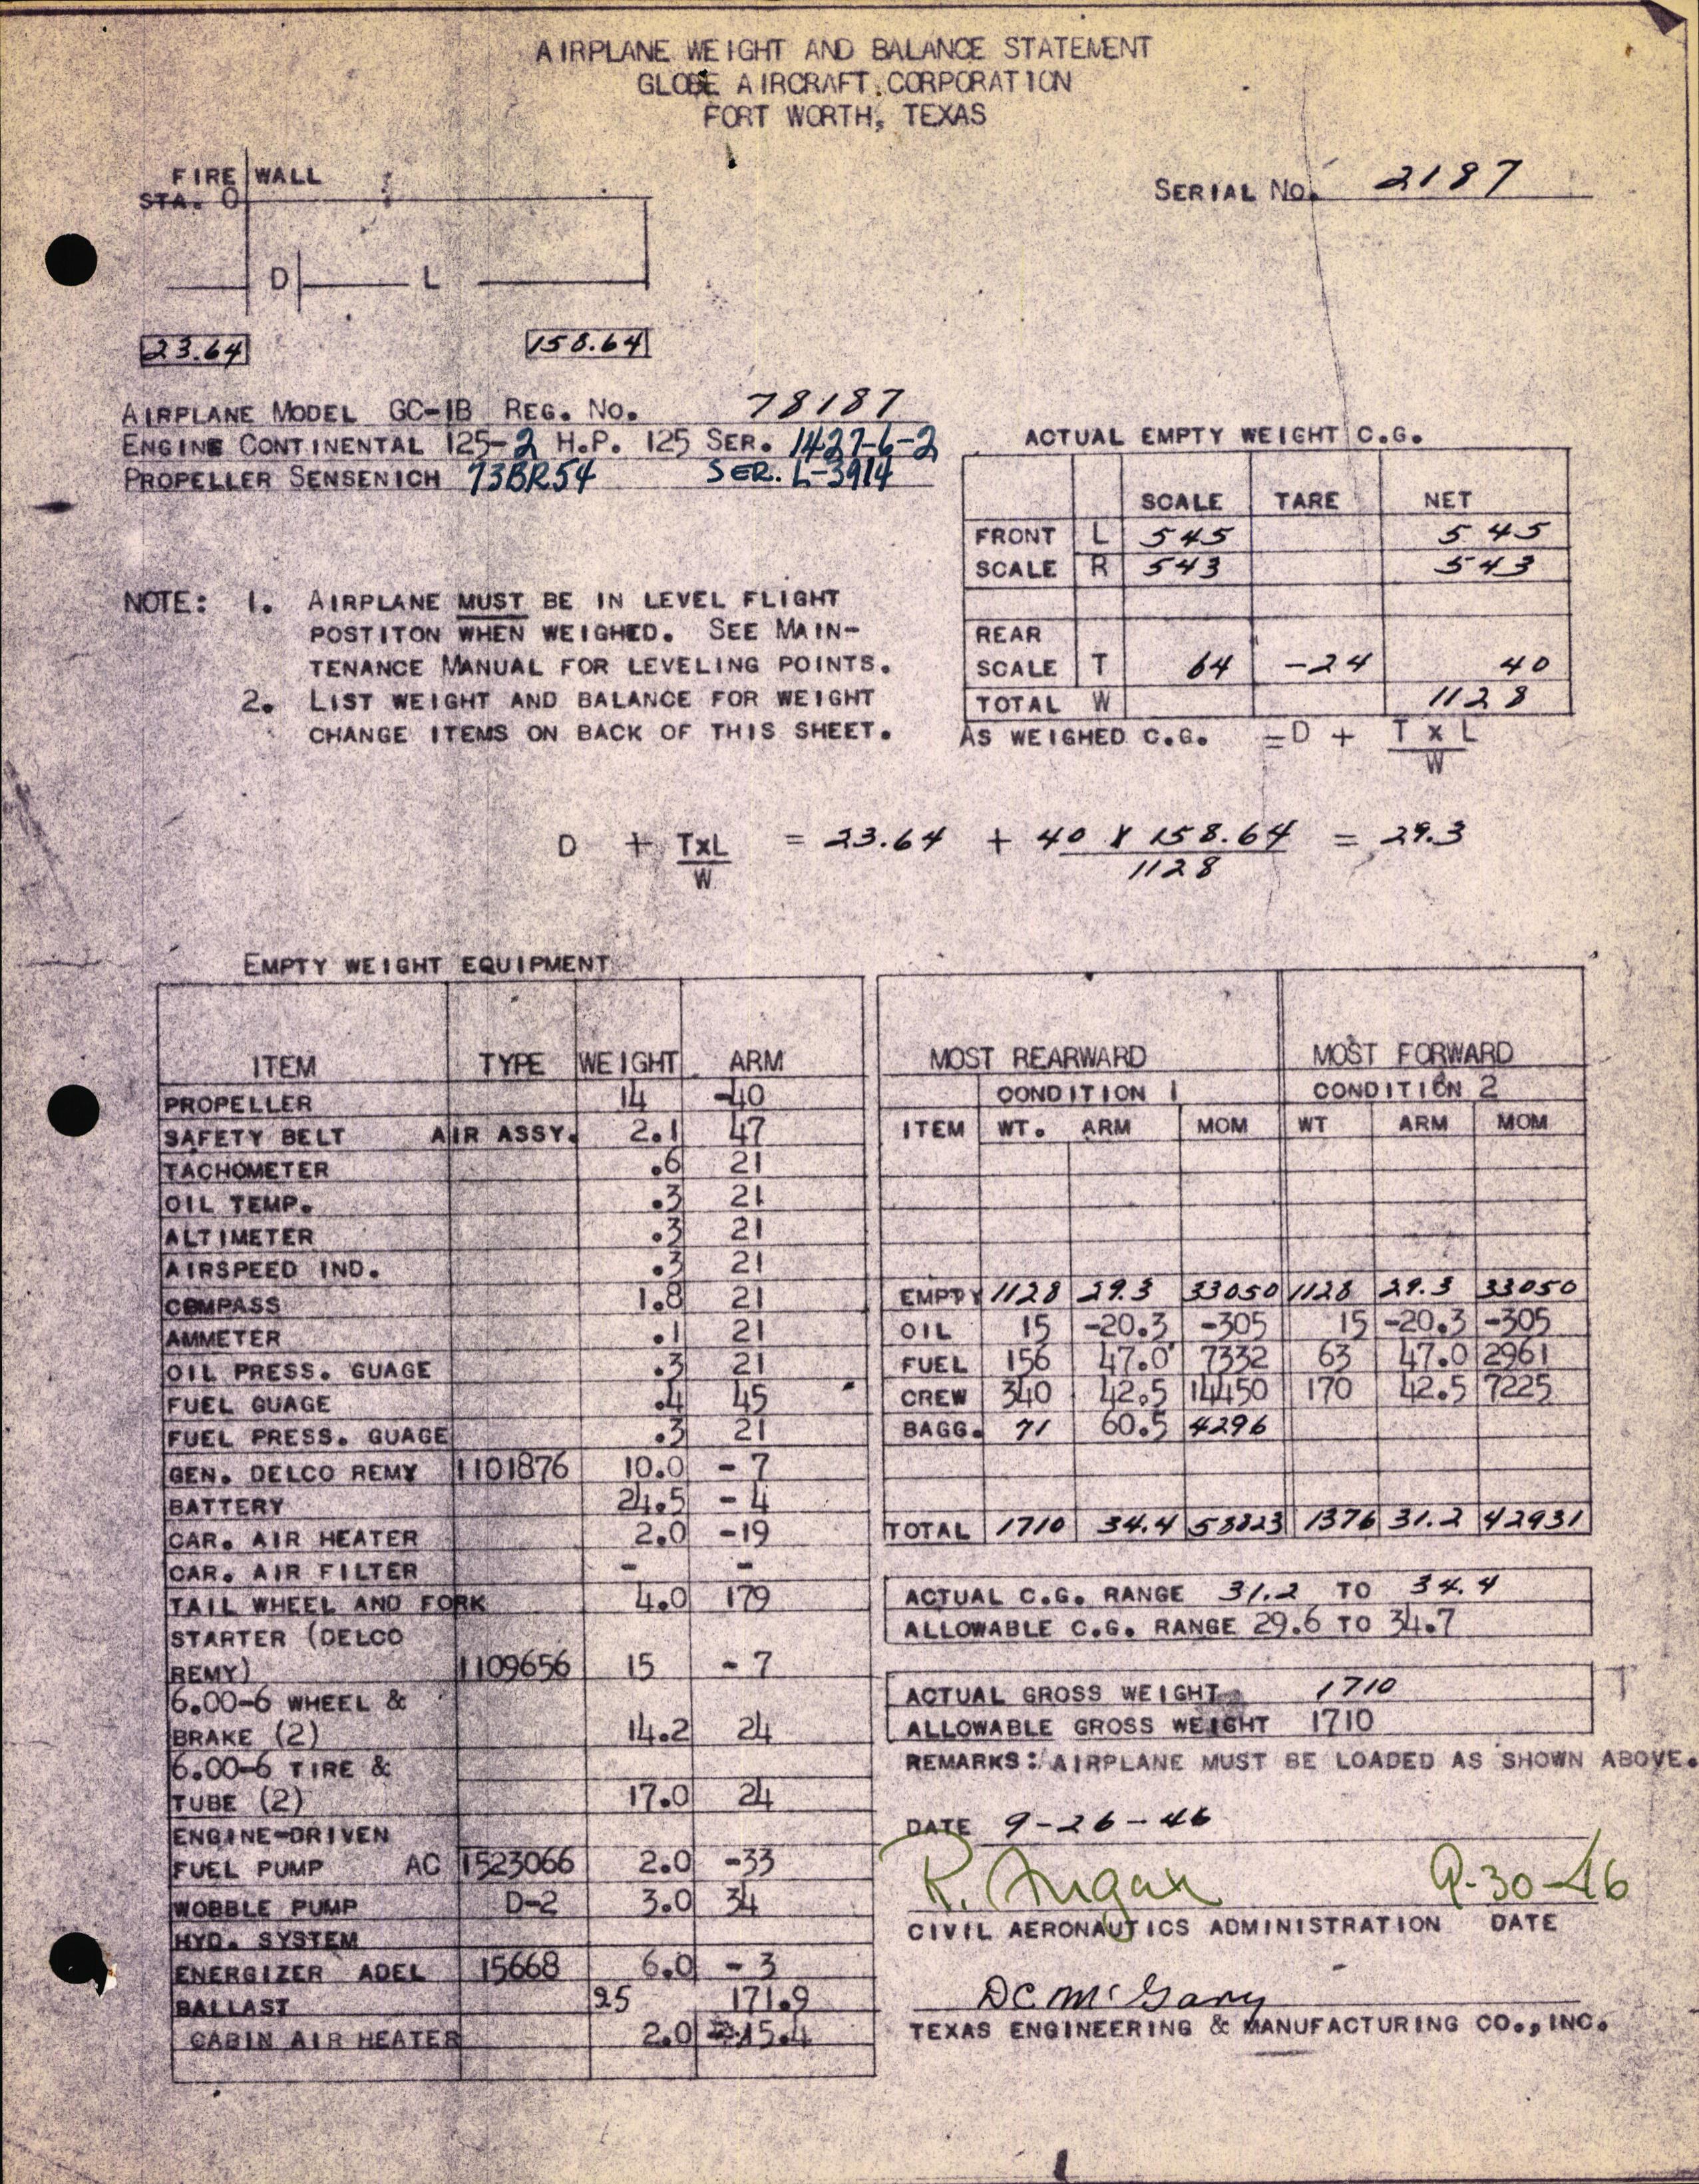 AIRPLANE WEIGHT AND BALANCE STATEMENT
GLOBE AIRCRAFT CORPORATION
FORT WORTH, TEXAS
FIRE WALL
STA. 0
SERIAL NO. 2187
D L
23.64 158.64
AIRPLANE MODEL GC-1B REG. NO. 78187
ENGINE CONTINENTAL 125-2 H.P. 125 SER. 1427-6-2
PROPELLER SENSENICH 73BR54 SER. L-3914
ACTUAL EMPTY WEIGHT C.G.
SCALE TARE NET
FRONT L 545 545
SCALE R 543 543
REAR
SCALE T 64 -24 40
TOTAL W 1128
AS WEIGHED C.G. = D + T x L
W
NOTE: 1. AIRPLANE MUST BE IN LEVEL FLIGHT
POSTITON WHEN WEIGHED. SEE MAIN-
TENANCE MANUAL FOR LEVELING POINTS.
2. LIST WEIGHT AND BALANCE FOR WEIGHT
CHANGE ITEMS ON BACK OF THIS SHEET.
D + TxL = 23.64 + 40 X 158.64 = 29.3
W 1128
EMPTY WEIGHT EQUIPMENT
ITEM TYPE WEIGHT ARM
PROPELLER 14 -40
SAFETY BELT AIR ASSY. 2.1 47
TACHOMETER .6 21
OIL TEMP. .3 21
ALTIMETER .3 21
AIRSPEED IND. .3 21
COMPASS 1.8 21
AMMETER .1 21
OIL PRESS. GUAGE .3 21
FUEL GUAGE .4 45
FUEL PRESS. GUAGE .3 21
GEN. DELCO REMY 1101876 10.0 - 7
BATTERY 24.5 - 4
CAR. AIR HEATER 2.0 -19
CAR. AIR FILTER - -
TAIL WHEEL AND FORK 4.0 179
STARTER (DELCO
REMY) 1109656 15 - 7
6.00-6 WHEEL &
BRAKE (2) 14.2 24
6.00-6 TIRE &
TUBE (2) 17.0 24
ENGINE-DRIVEN
FUEL PUMP AC 1523066 2.0 -33
WOBBLE PUMP D-2 3.0 34
HYD. SYSTEM
ENERGIZER ADEL 15668 6.0 - 3
BALLAST 25 171.9
CABIN AIR HEATER 2.0 15.4
MOST REARWARD MOST FORWARD
CONDITION 1 CONDITION 2
ITEM WT. ARM MOM WT ARM MOM
EMPTY 1128 29.3 33050 1128 29.3 33050
OIL 15 -20.3 -305 15 -20.3 -305
FUEL 156 47.0 7332 63 47.0 2961
CREW 340 42.5 14450 170 42.5 7225
BAGG. 71 60.5 4296
TOTAL 1710 34.4 58823 1376 31.2 42931
ACTUAL C.G. RANGE 31.2 TO 34.4
ALLOWABLE C.G. RANGE 29.6 TO 34.7
ACTUAL GROSS WEIGHT 1710
ALLOWABLE GROSS WEIGHT 1710
REMARKS: AIRPLANE MUST BE LOADED AS SHOWN ABOVE.
DATE 9-26-46
R. 9-30-46
CIVIL AERONAUTICS ADMINISTRATION DATE
DC McGary
TEXAS ENGINEERING & MANUFACTURING CO., INC.